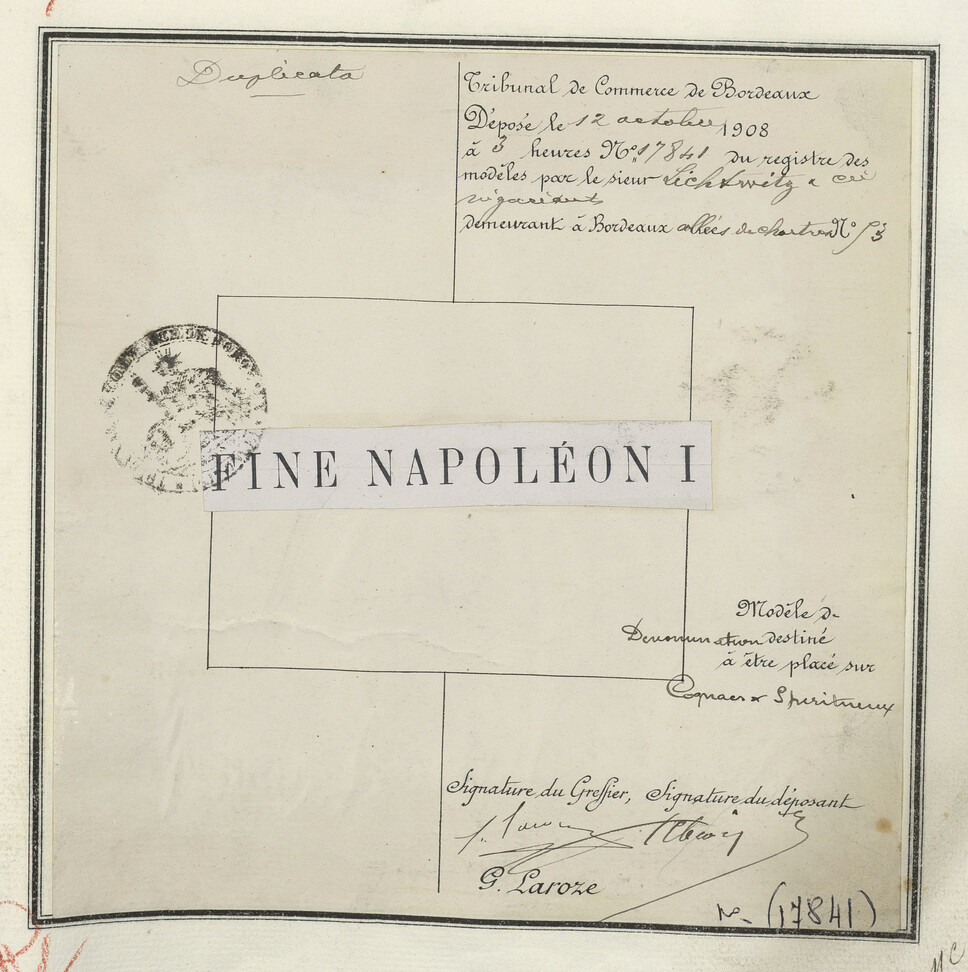 Duplicata
Tribunal de Commerce de Bordeaux
Déposé le 12 octobre 1908
à 3 heures N° 17841 du registre des
modèles par le sieur Lichtwitz & Cie
négociants
demeurant à Bordeaux allées de chartres N° 53
FINE NAPOLÉON I
Modèle de
Denomination destiné
à être placé sur
Cognacs & Spiritueux
Signature du Greffier, Signature du déposant
G. Laroze
N° (17841)